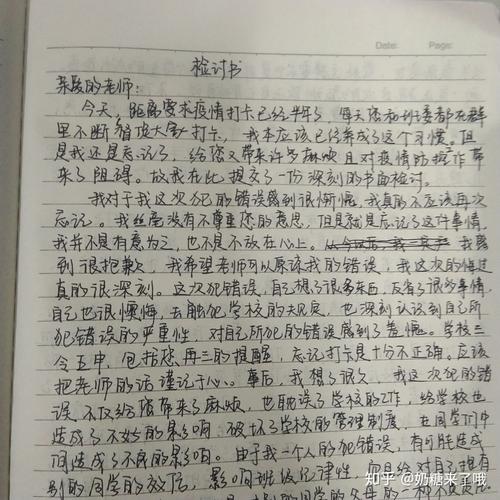 Date: Page:
检讨书
亲爱的老师:
今天,距离要求疫情打卡已经半年了,每天您和班委都在群
里不断督促大家打卡,我本应该已经养成了这个习惯。但
是我还是忘记了,给您又带来许多麻烦且对疫情防控工作带
来了阻碍。故我在此提交了一份深刻的书面检讨。
我对于我这次犯的错误感到很惭愧,我真的不应该再次
忘记。我丝毫没有不尊重您的意思,但是就是忘记了这件事情,
我并不是有意为之,也不是不放在心上。我感
到很抱歉,我希望老师可以原谅我的错误,我这次的悔过
真的很深刻。这次犯错误,自己想了很多东西,反省了很多事情,
自己也很懊悔,去触犯学校的规定,也深刻认识到自己所
犯错误的严重性,对自己所犯的错误感到了羞愧。学校三
令五申,包括您再三的提醒,忘记打卡是十分不正确。应该
把老师的话谨记于心。事后,我想了很久,我这次犯的错
误,不仅给您带来了麻烦,也耽误了学校的工作,给学校也
造成了不好的影响,破坏了学校的管理制度,在同学们中
间造成了不良的影响。由于我一个人的犯错误,有可能造成
别的同学的效仿,影响班级纪律性,
知乎 @奶糖来了哦